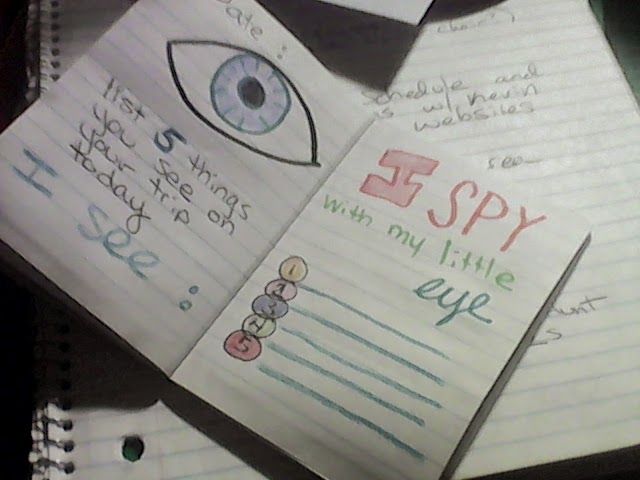 Date:
list 5 things
you see on
your trip
today
I see:
I SPY
with my little
eye
1
2
3
4
5
schedule and
websites
see